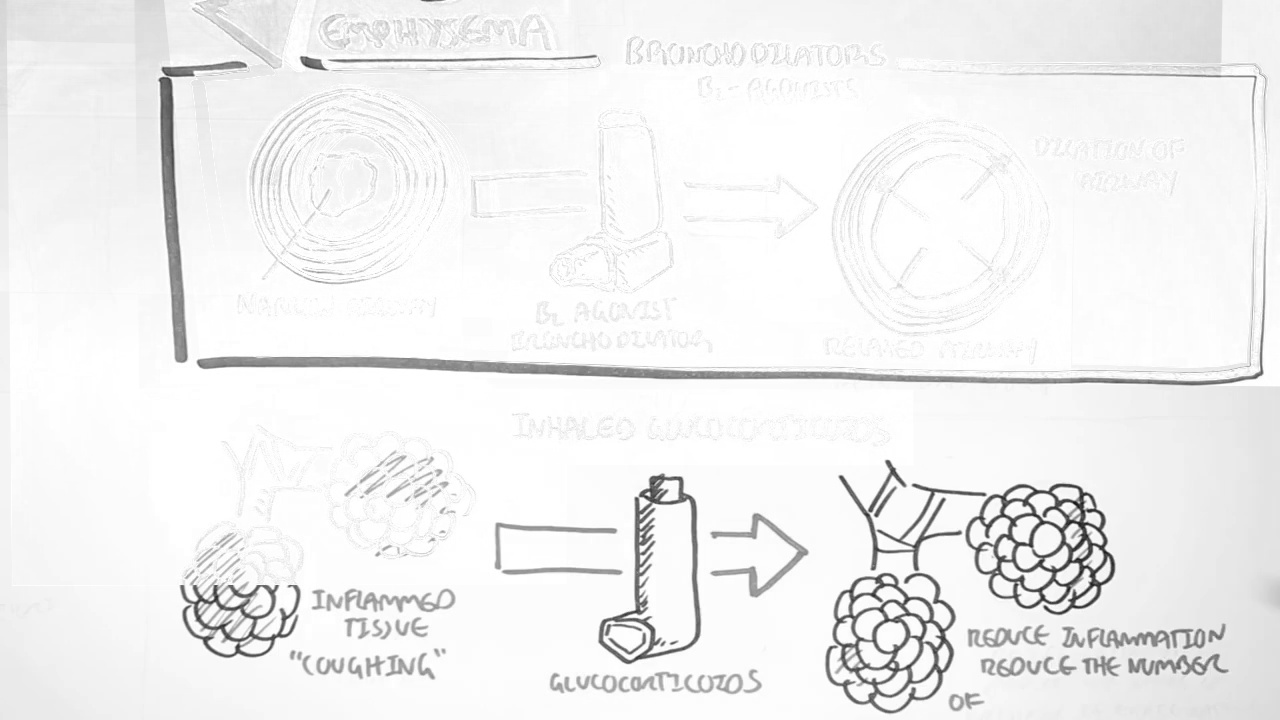 EMPHYSEMA
BRONCHODILATORS
B₂-AGONISTS
DILATION OF
AIRWAY
NARROW AIRWAY
B₂ AGONIST
BRONCHODILATOR
RELAXED AIRWAY
INHALED GLUCOCORTICOIDS
INFLAMMED
TISSUE
"COUGHING"
GLUCOCORTICOIDS
REDUCE INFLAMMATION
REDUCE THE NUMBER
OF